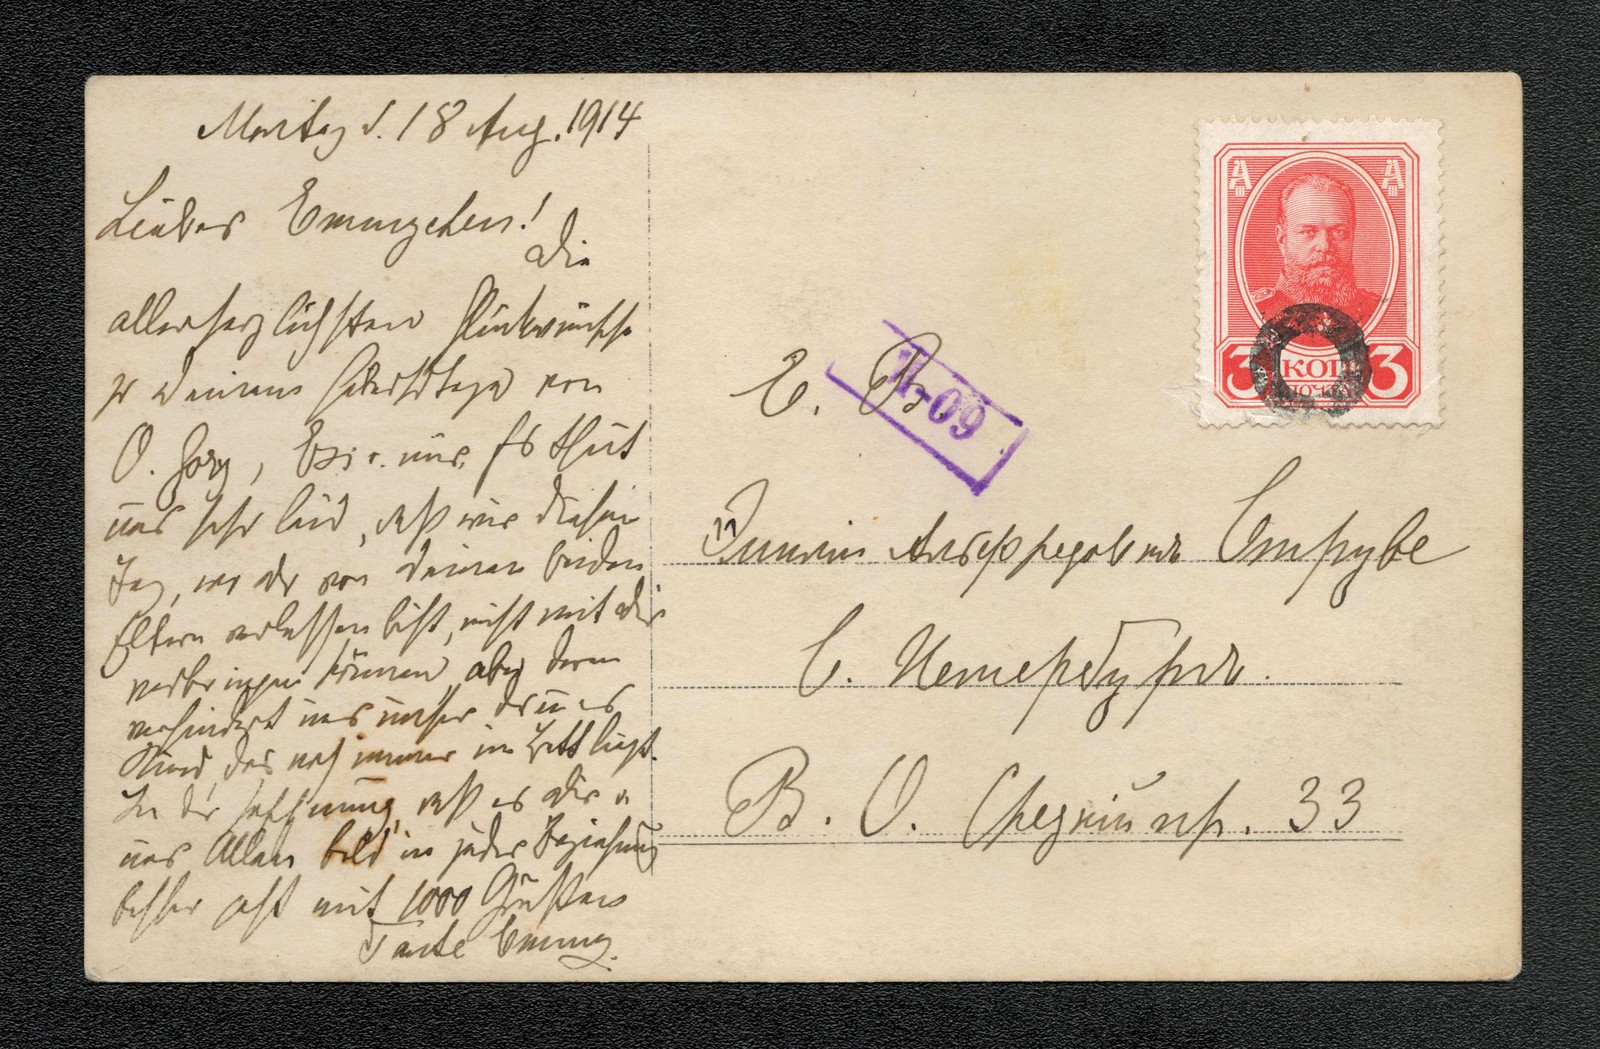 Montag d. 18 Aug. 1914
Liebes Emmychen!
Die
allerherzlichsten Glückwünsche
zu Deinem Geburtstage von
O. Georg, u. mir. Es thut
uns sehr leid, daß wir diesen
Tag, wo Du von Deinen beiden
Eltern verlassen bist, nicht mit Dir
verbringen können aber denn
verhindert uns unser
Kind, das noch immer im Bett liegt.
In der Hoffnung, daß es Dir u.
uns Allen bald in jeder Beziehung
besser geht mit 1000 Grüßen
Tante Emmy.
3 КОП 3
ПОЧТА
11-09
Е. В.
Эмилии Альфредовнъ Струве
С. Петербургъ.
В. О. Средній пр. 33